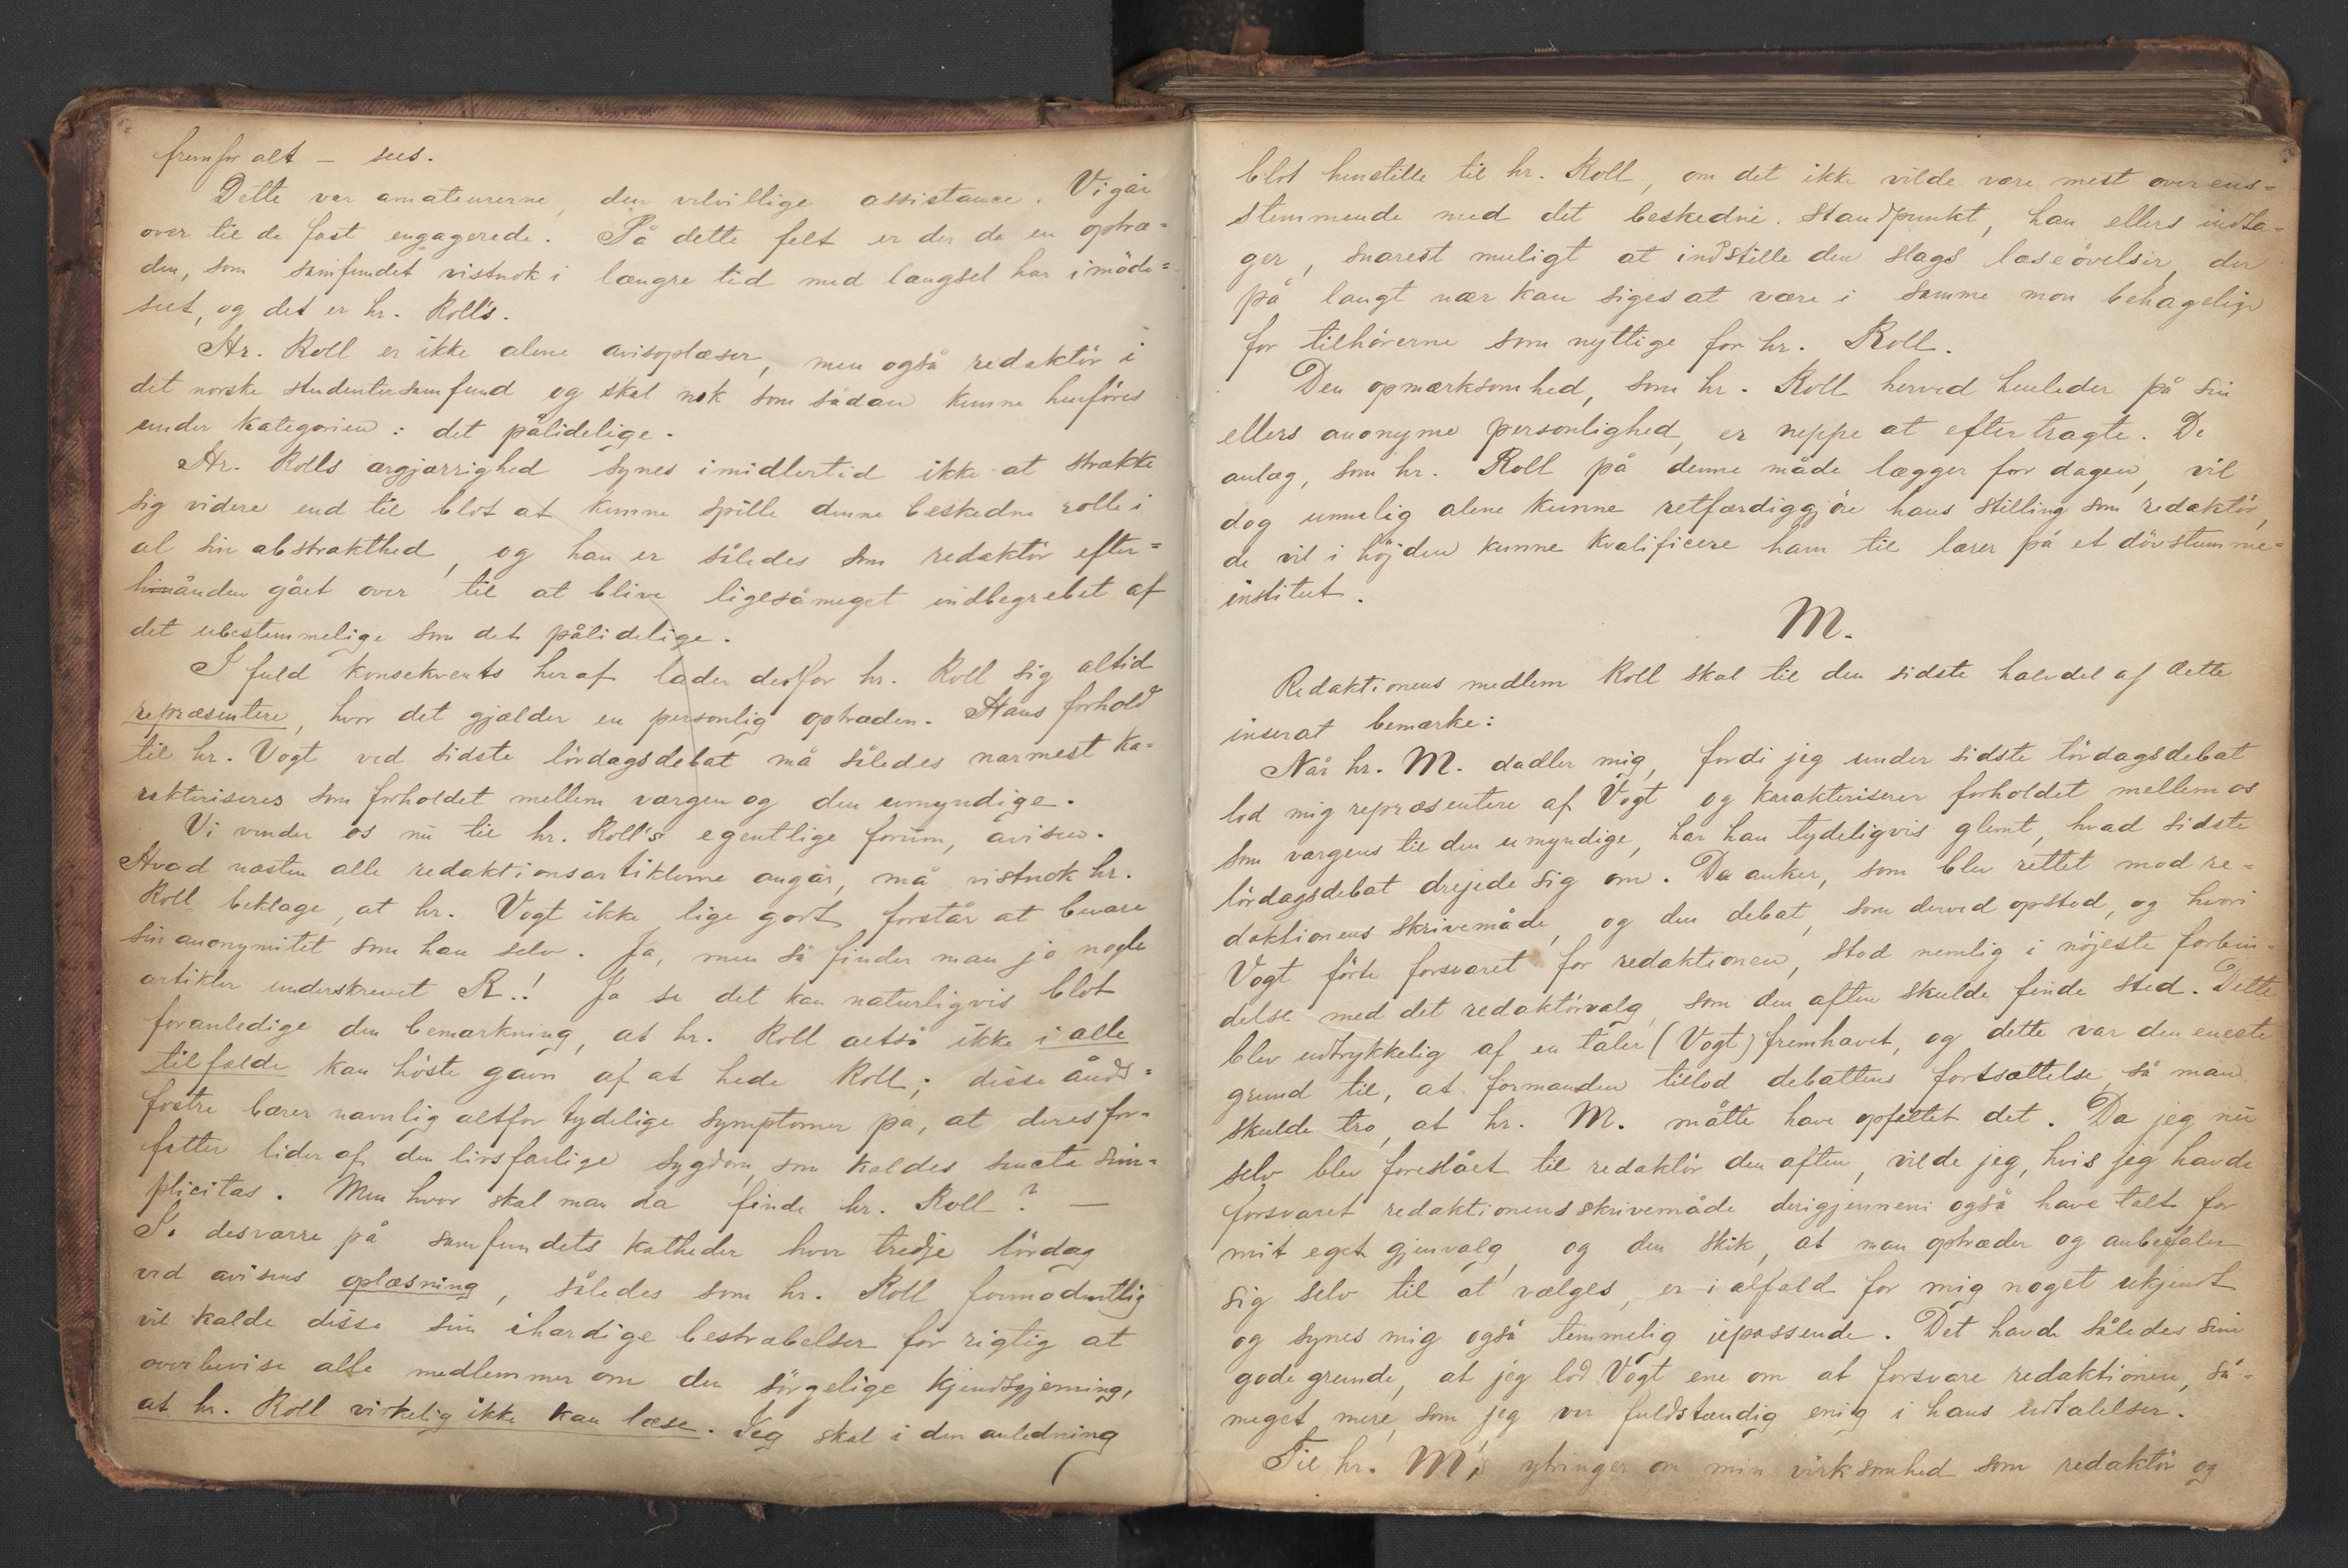 fremfor alt – sees.
Dette var amateurerne, den velvillige assistance. Vi går
over til de fast engagerede. På dette felt er der da en optræ-
den, som samfundet vistnok i længre tid med længsel har imøde-
seet, og det er hr. Rolls.
Hr. Roll er ikke alene avisoplæser, men også redaktör i
det norske studentersamfund og skal nok som sådan kunne henföres
under kategorien: det pålidelige.
Hr. Rolls ærgjærrighed synes imidlertid ikke at strække
sig videre end til blot at kunne spille denne beskedne rolle i
al sin abstrakthed, og han er således som redaktör efter-
hånden gået over til at blive ligesåmeget indbegrebet af
det ubestemmelige som det pålidelige.
I fuld konsekvents heraf lader derfor hr. Roll sig altid
repræsentere, hvor det gjælder en personlig optræden. Hans forhold
til hr. Vogt ved sidste lördagsdebat må således nærmest ka-
rakteriseres som forholdet mellem værgen og den umyndige.
Vi vender os nu til hr. Roll's egentlige forum, avisen.
Hvad næsten alle redaktionsartiklerne angår, må vistnok hr.
Roll beklage, at hr. Vogt ikke lige godt forstår at bevare
sin anonymitet som han selv. Ja, men så finder man jo nogle
artikler underskrevet R.! Ja se det kan naturligvis blot
foranledige den bemærkning, at hr. Roll altså ikke i alle
tilfælde kan höste gavn af at hede Roll; disse ånds-
fostre bærer navnlig altfor tydelige symptomer på, at deres for-
fatter lider af den livsfarlige sygdom, som kaldes sancta sim-
plicitas. Men hvor skal man da finde hr. Roll? —
Jo desværre på samfundets katheder hver tredje lördag
ved avisens oplæsning, således som hr. Roll formodentlig
vil kalde disse sine ihærdige bestræbelser for rigtig at
overbevise alle medlemmer om den sörgelige kjendsgjerning,
at hr. Roll virkelig ikke kan læse. Jeg skal i den anledning
blot henstille til hr. Roll, om det ikke vilde være mest overens-
stemmende med det beskedne standpunkt, han ellers indta-
ger, snarest muligt at indstille den slags læseövelser, der
på langt nær kan siges at være i samme mon behagelige
for tilhörerne som nyttige for hr. Roll.
Den opmærksomhed, som hr. Roll herved henleder på sin
ellers anonyme personlighed, er neppe at eftertragte. De
anlæg, som hr. Roll på denne måde lægger for dagen, vil
dog umulig alene kunne retfærdiggjöre hans stilling som redaktör,
de vil i höjden kunne kvalificere ham til lærer på et dövstumme-
institut.
M.
Redaktionens medlem Roll skal til den sidste halvdel af dette
inserat bemærke:
Når hr. M. dadler mig, fordi jeg under sidste lördagsdebat
lod mig repræsentere af Vogt og karakteriserer forholdet mellem os
som værgens til den umyndige, har han tydeligvis glemt, hvad sidste
lördagsdebat drejede sig om. De anker, som blev rettet mod re-
daktionens skrivemåde, og den debat, som derved opstod, og hvori
Vogt förte forsvaret for redaktionen, stod nemlig i nöjeste forbin-
delse med det redaktörvalg, som den aften skulde finde sted. Dette
blev udtrykkelig af en taler (Vogt) fremhævet, og dette var den eneste
grund til, at formanden tillod debattens fortsættelse, så man
skulde tro, at hr. M. måtte have opfattet det. Da jeg nu
selv blev foreslået til redaktör den aften, vilde jeg, hvis jeg havde
forsvaret redaktionens skrivemåde derigjennem også have talt for
mit eget gjenvalg, og den skik, at man optræder og anbefaler
sig selv til at vælges, er i alfald for mig noget ukjendt
og synes mig også temmelig upassende. Det havde således sine
gode grunde, at jeg lod Vogt ene om at forsvare redaktionen, så-
meget mere, som jeg var fuldstændig enig i hans udtalelser.
Til hr. M.'s ytringer om min virksomhed som redaktör og